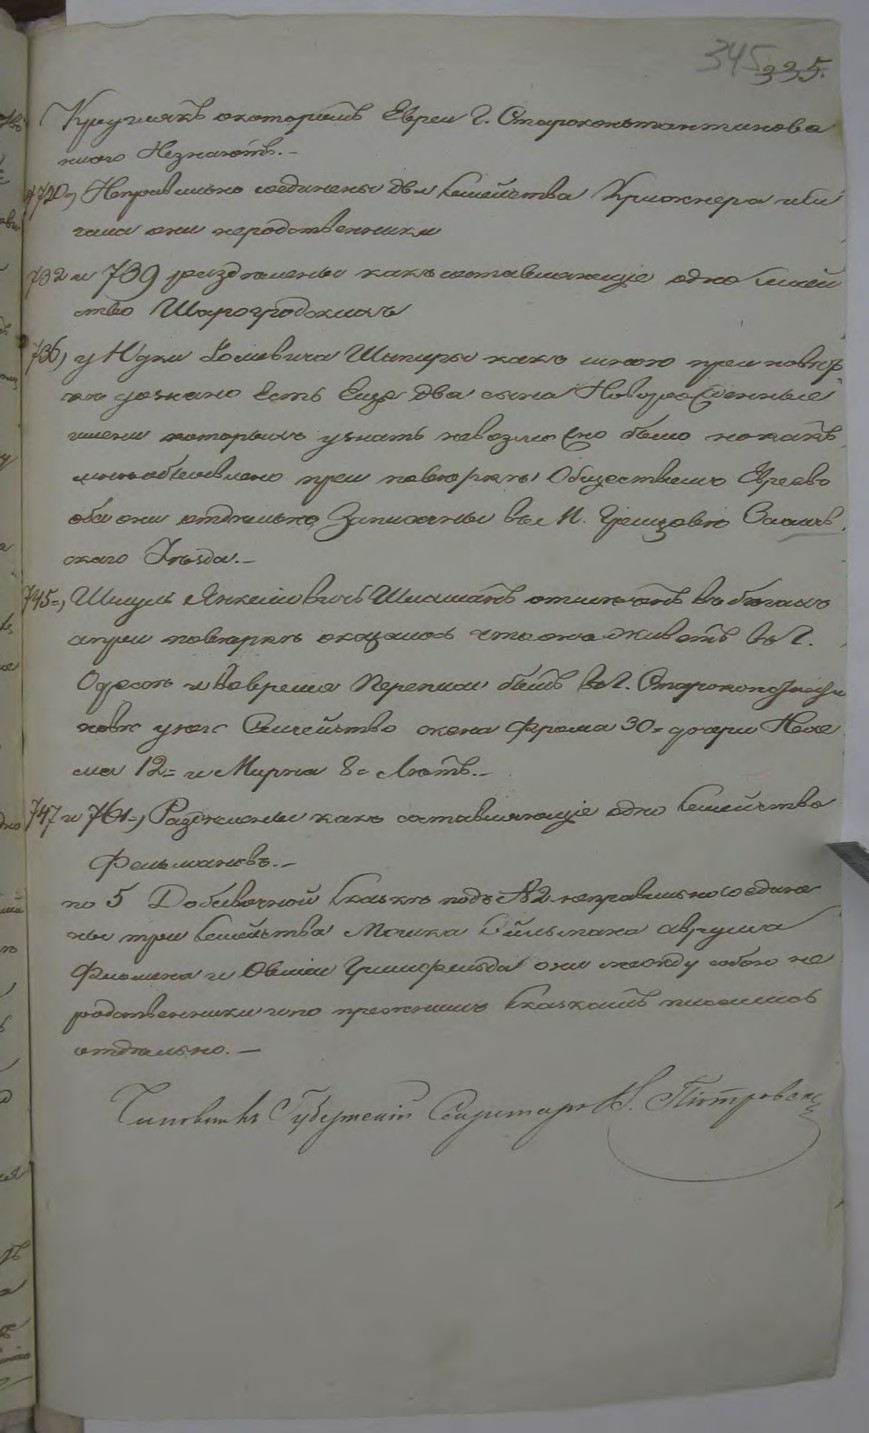 345 335.
Кругликъ окоторомъ Евреи Г. Староконстантинова
ничего Незнаютъ.-
720, Неправильно соединены два Семейства Крижнера или
они неродственники
732 и 739 разделены какъ составляющіе одно Семей
ство Шарогродскихъ
736, у Юдки Іосіовича Шапиры какъ мною при поверк
ке узнано Есть Еще два сына Новорожденные
имени которыхъ узнать невозможно было но какъ
мне объявлено при поверкѣ Обществомъ Евреевъ
оба они отдельно Записаны въ М. Грицовѣ Заслав
скаго Уезда.-
745=, Шмуль Янкеліовичъ Шламанъ отмечанъ въ бегахъ
а при поверкѣ оказалось что онъ живетъ въ Г.
Одессе и вовремя Переписи былъ въ Г. Староконстанти
нове у него Семейство жена Фрома 30= дочери Неха
ма 12= и Мирка 8= Летъ.-
747 и 761=, Разделены какъ составляющіе одно Семейство
Фельмановъ.-
по 5 Добавочной Сказке подъ № 2 неправильно соедине
ны три Семейства Мошка
и Овши Гринфельда они между собою не
родственники и по прежнимъ Сказкамъ писались
отдельно.-
Чиновникъ Губернскій Секретарь Петровск